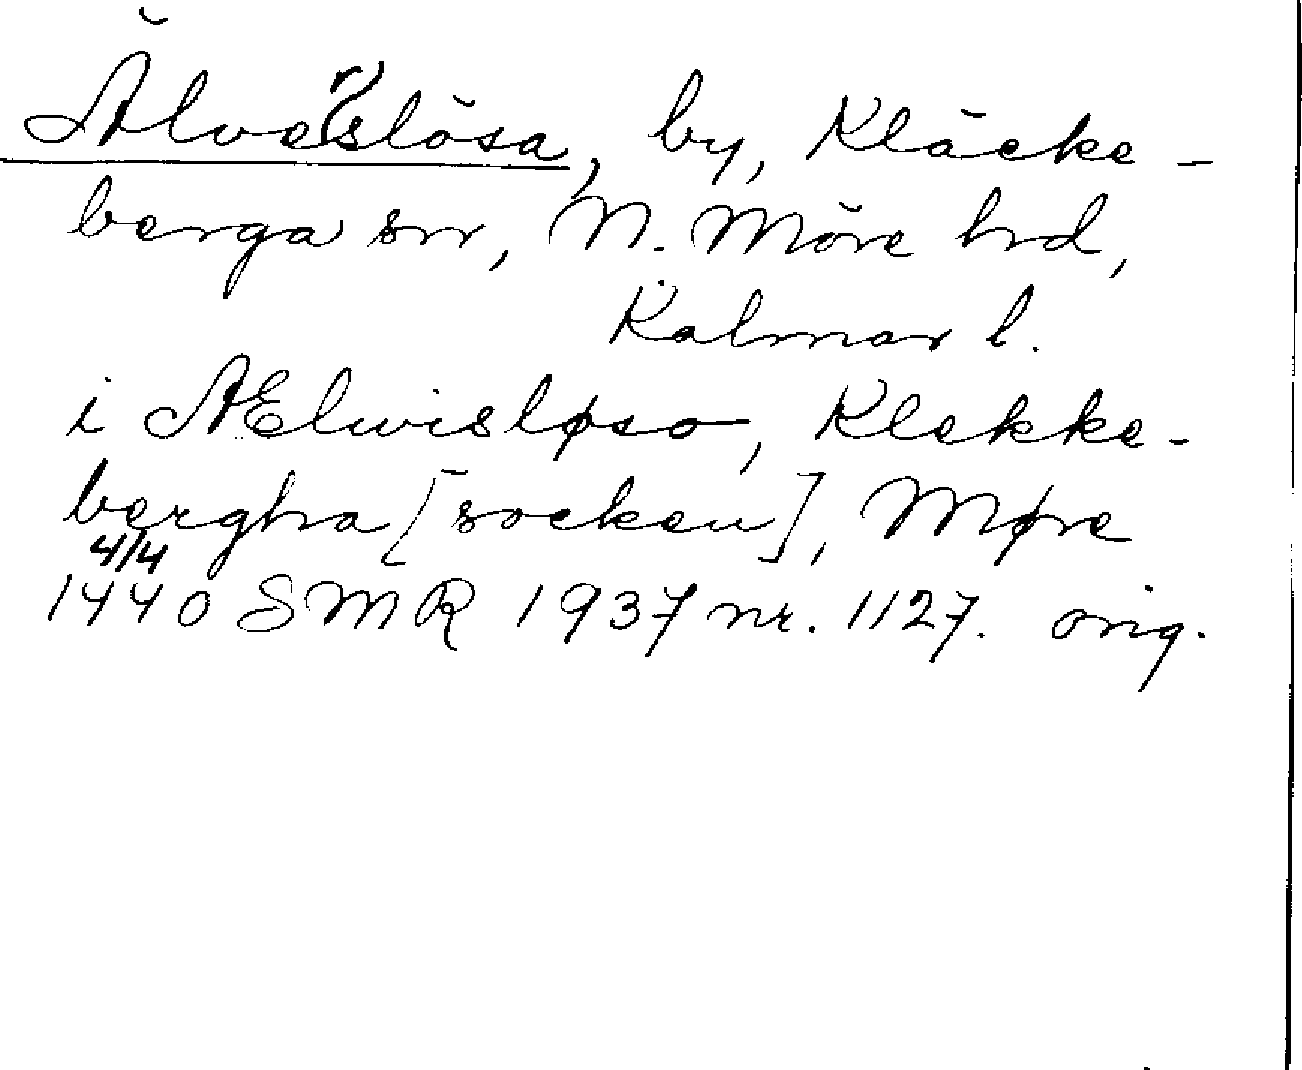 Älve(r)slösa, by, Kläcke-
berga sn, N. Möre hd,
Kalmar l.
i AElwisløso, Klekke-
bergha [socken], Møre
4/4
1440 SMR 1937 nr. 1127. orig.